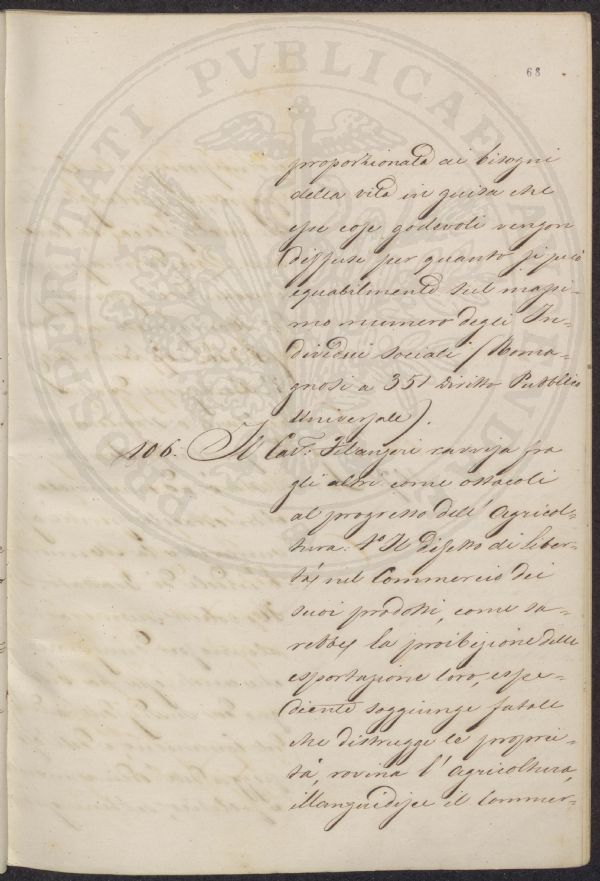 68
proporzionata ai bisogni
della vita in guisa che
esse cose godevoli vengon
diffuse per quanto si può
equabilmente sul massi-
mo numero degli In-
dividui sociali (Roma-
gnosi a 351 Diritto Pubblico
Universale).
106. Il Cav.r Filangeri ravvisa fra
gli altri come ostacoli
al progresso dell' Agricol-
tura: 1° Il difetto di liber-
tà nel Commercio dei
suoi prodotti, come sa-
rebbe la proibizione della
esportazione loro, espe-
diente soggiunge fatale
che distrugge le proprie-
tà, rovina l' Agricoltura,
illanguidisce il Commer-
PROSPERITATI PVBLICAE